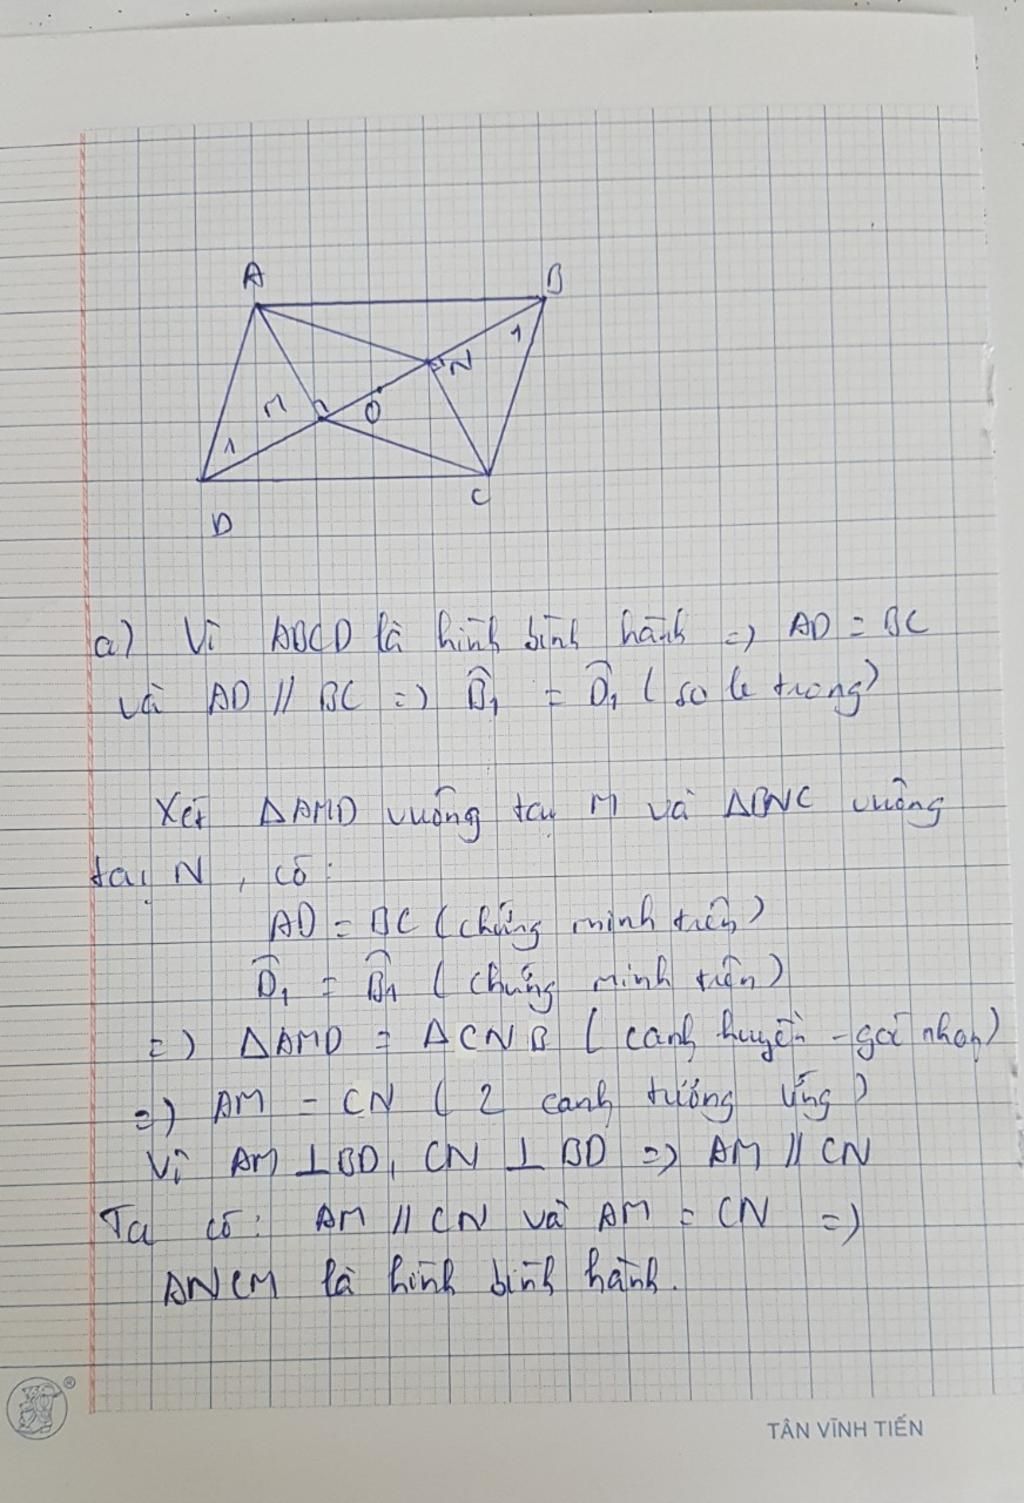 A
B
1
N
M
O
1
C
D
a) Vì ABCD là hình bình hành => AD = BC
và AD // BC => B̂₁ = D̂₁ (so le trong)
Xét ΔAMD vuông tại M và ΔBNC vuông
tại N, có:
AD = BC (chứng minh trên)
D̂₁ = B̂₁ (chứng minh trên)
=> ΔAMD = ΔCNB (cạnh huyền - góc nhọn)
=> AM = CN (2 cạnh tương ứng)
Vì AM ⊥ BD, CN ⊥ BD => AM // CN
Ta có: AM // CN và AM = CN =>
ANCM là hình bình hành.
®
TÂN VĨNH TIẾN